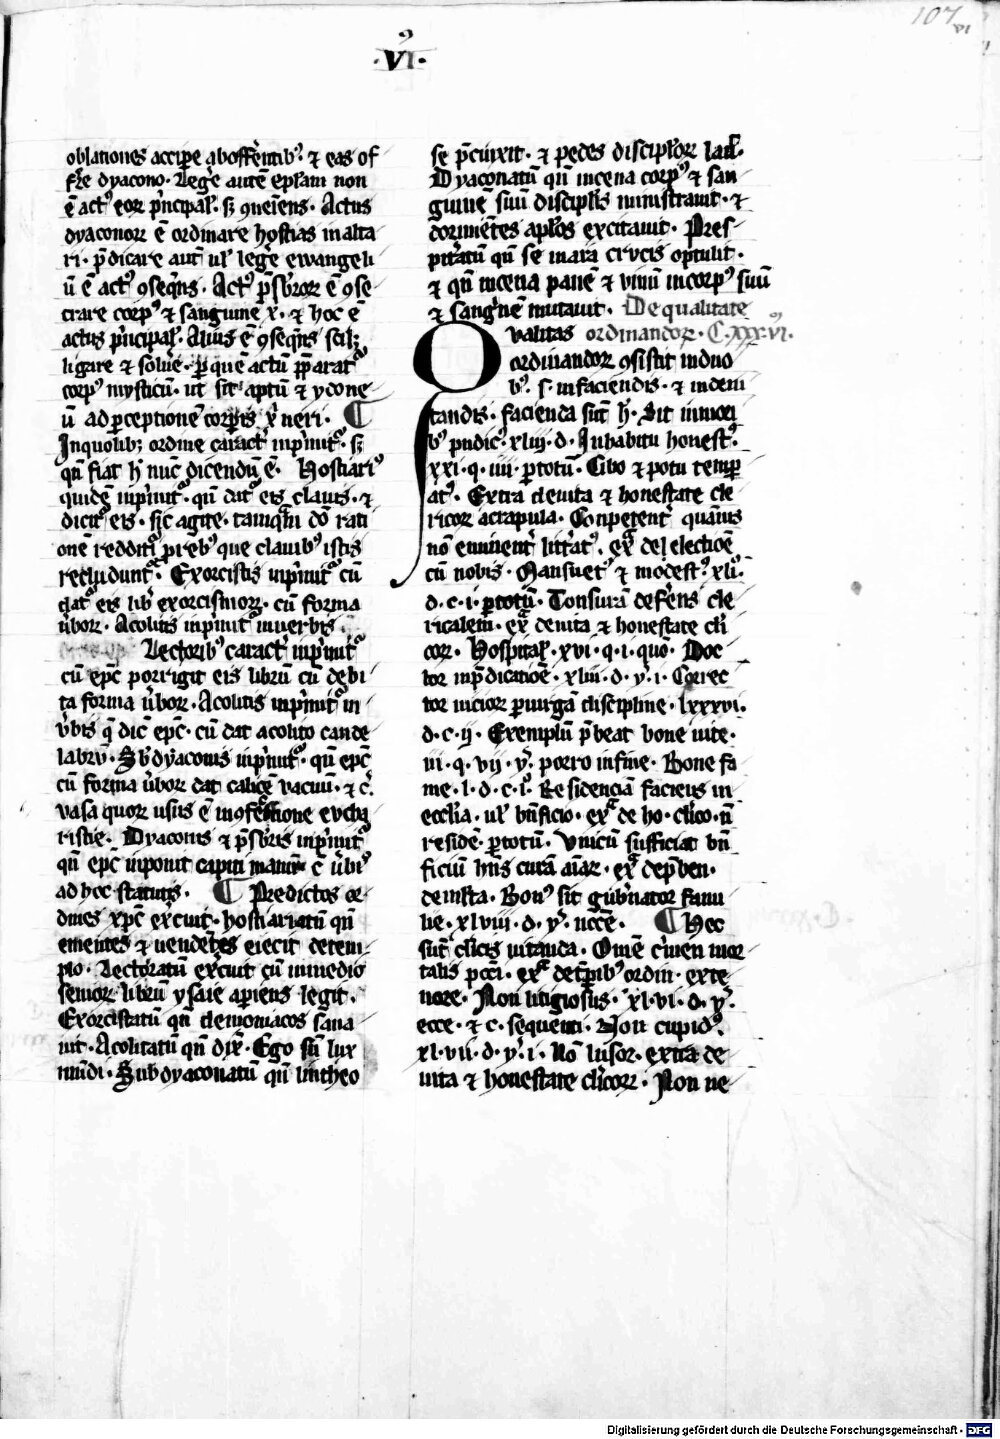 107
VI
·VI·
oblationes accipe̅ ab offere̅tib⁹ ⁊ eas of
fr̅e dyacono · Leg̅e aute̅ ep̅lam non
e̅ act⁹ eor̅ p̅ncipal̅ · sꝫ ꝯneie̅ns · Actus
dyaconoꝝ e̅ ordinare hostias in alta
ri · p̅dicare aut̅ ul̅ leg̅e ewangeli
u̅ e̅ act⁹ ꝯseque̅s · Act⁹ p̅sb̅roꝝ e̅ ꝯse
crare corp⁹ ⁊ sanguine̅ x̅ · ⁊ hoc e̅
actus p̅ncipal̅ · Alius e̅ ꝯseque̅s scil̅ꝫ
ligare ⁊ solue̅ · p̲ que̅ actu̅ p̅parat᷑
corp⁹ mysticu̅ · ut sit aptu̅ ⁊ ydone
u̅ ad p̲ceptione̅ corp̅is x̅ ueri · ¶
In quolibꝫ ordine caract̅ inp̅mit᷑ · sꝫ
qn̅ fiat h̅ nu̅c dicendu̅ e̅ · Hostiari⁹
quide̅ inp̅mit᷑ · qn̅ dat᷑ eis clauis · ⁊
dicit᷑ eis · sic agite · tamq̅m do̅ rati
one̅ reddit᷑i p̲ reb⁹ que clauib⁹ istis
recludunt᷑ · Exorcistis inp̅mit᷑ cu̅
dat᷑ eis lib̅ exorcismoꝝ · cu̅ forma
u̅boꝝ · Acolitis inp̅mit᷑ in uerbis
Lectorib⁹ caract̅ inp̅mit᷑
cu̅ ep̅c porrigit eis libru̅ cu̅ debi
ta forma u̅boꝝ · Acolitis inp̅mit᷑ in
u̅bis q̅ dic̅ ep̅c · cu̅ dat acolito cande
labru̅ · Sb̅dyaconis inp̅mit᷑ · qn̅ ep̅c
cu̅ forma u̅boꝝ dat calice̅ vacuu̅ · ⁊ c̅
vasa quoꝝ usus e̅ in ꝯfectione eucha
ristie · Dyaconis ⁊ p̅sb̅ris inp̅mit᷑
qn̅ ep̅c inponit capiti manu̅ c̅ u̅bis
ad hoc statutis · ¶ Predictos or
dines xp̅c exe̅cuit · hostiariatu̅ qn̅
ementes ⁊ uende̅tes eiecit de tem
plo · Lectoratu̅ exe̅cuit cu̅ in medio
senioꝝ libru̅ ysaie ap̲iens legit ·
Exorcistatu̅ qn̅ demoniacos sana
uit · Acolitatu̅ qn̅ dix̅ · Ego su̅ lux
mu̅di · Subdyaconatu̅ qn̅ lintheo
se p̅cinxit · ⁊ pedes discip̅loꝝ lauit ·
Dyaconatu̅ qn̅ in cena corp⁹ ⁊ san
guine̅ suu̅ discip̅lis ministrauit · ⁊
dormie̅tes ap̅los excitauit · Pres
pit̅atu̅ qn̅ se in ara crucis optulit ·
⁊ qn̅ in cena pane̅ ⁊ vinu̅ in corp⁹ suu̅
⁊ sang̅ne̅ mutauit · De qualitate
Qualitas ordinandoꝝ · C · xxx·vi ·
ordinandoꝝ ꝯsistit in duo
b⁹ · s · in faciendis · ⁊ in deui
tandis · facienda su̅t h̅ · Sit in mori
b⁹ pudic⁹ · xliiii · d · In habitu honest⁹ ·
xxi · q · iiii · p̲ totu̅ · Cibo ⁊ potu temp̲
at⁹ · Extra de uita ⁊ honestate cle
ricoꝝ a crapula · Conpetent̅ quamuis
no̅ eminent̅ litt̅at⁹ · ex̅ de electio̅e
cu̅ nobis · Mansuet⁹ ⁊ modest⁹ · xli ·
d · c · i · p̲ totu̅ · Tonsura̅ defe̅ns cle
ricalem · ex̅ de uita ⁊ honestate cl̅i
coꝝ · Hospital̅ · xvi · q · i · quo̅ · Doc
tor in p̅dicatio̅e · xliii · d · y̅ · i · Correc
tor uicioꝝ p̲ uirga̅ discipline · lxxxvi ·
d · c · ij · Exemplu̅ p̅beat bone uite ·
iii · q · vij · y̅ · porro in fine · Bone fa
me · l · d · c · i⁹ · Residencia̅ faciens in
eccl̅ia · ul̅ bn̅ficio · ex̅ de ho · cl̅ico · n̅
reside̅ · p̲ totu̅ · Vnicu̅ sufficiat bn̅
ficiu̅ hn̅s cura̅ a̅iaꝝ · ex̅ de p̅ben ·
de m̅lta · Bon⁹ sit gub̅nator fami
lie · xlviii · d · y̅ · ne̅c̅e̅ · ¶ Hec
su̅t cl̅icis uitanda · Om̅e c̅me̅n mor
talis pcc̅i · ex̅ de te̅p̅ib⁹ ordin · exte
riore · Non litigiosus · xl·vi · d · y̅ ·
ecce · ⁊ c · sequenti · Non cupid⁹ ·
xl·vii · d · y̅ · i · No̅ lusor · extra de
uita ⁊ honestate cl̅icoꝝ · Non ne
Digitalisierung gefördert durch die Deutsche Forschungsgemeinschaft - DFG